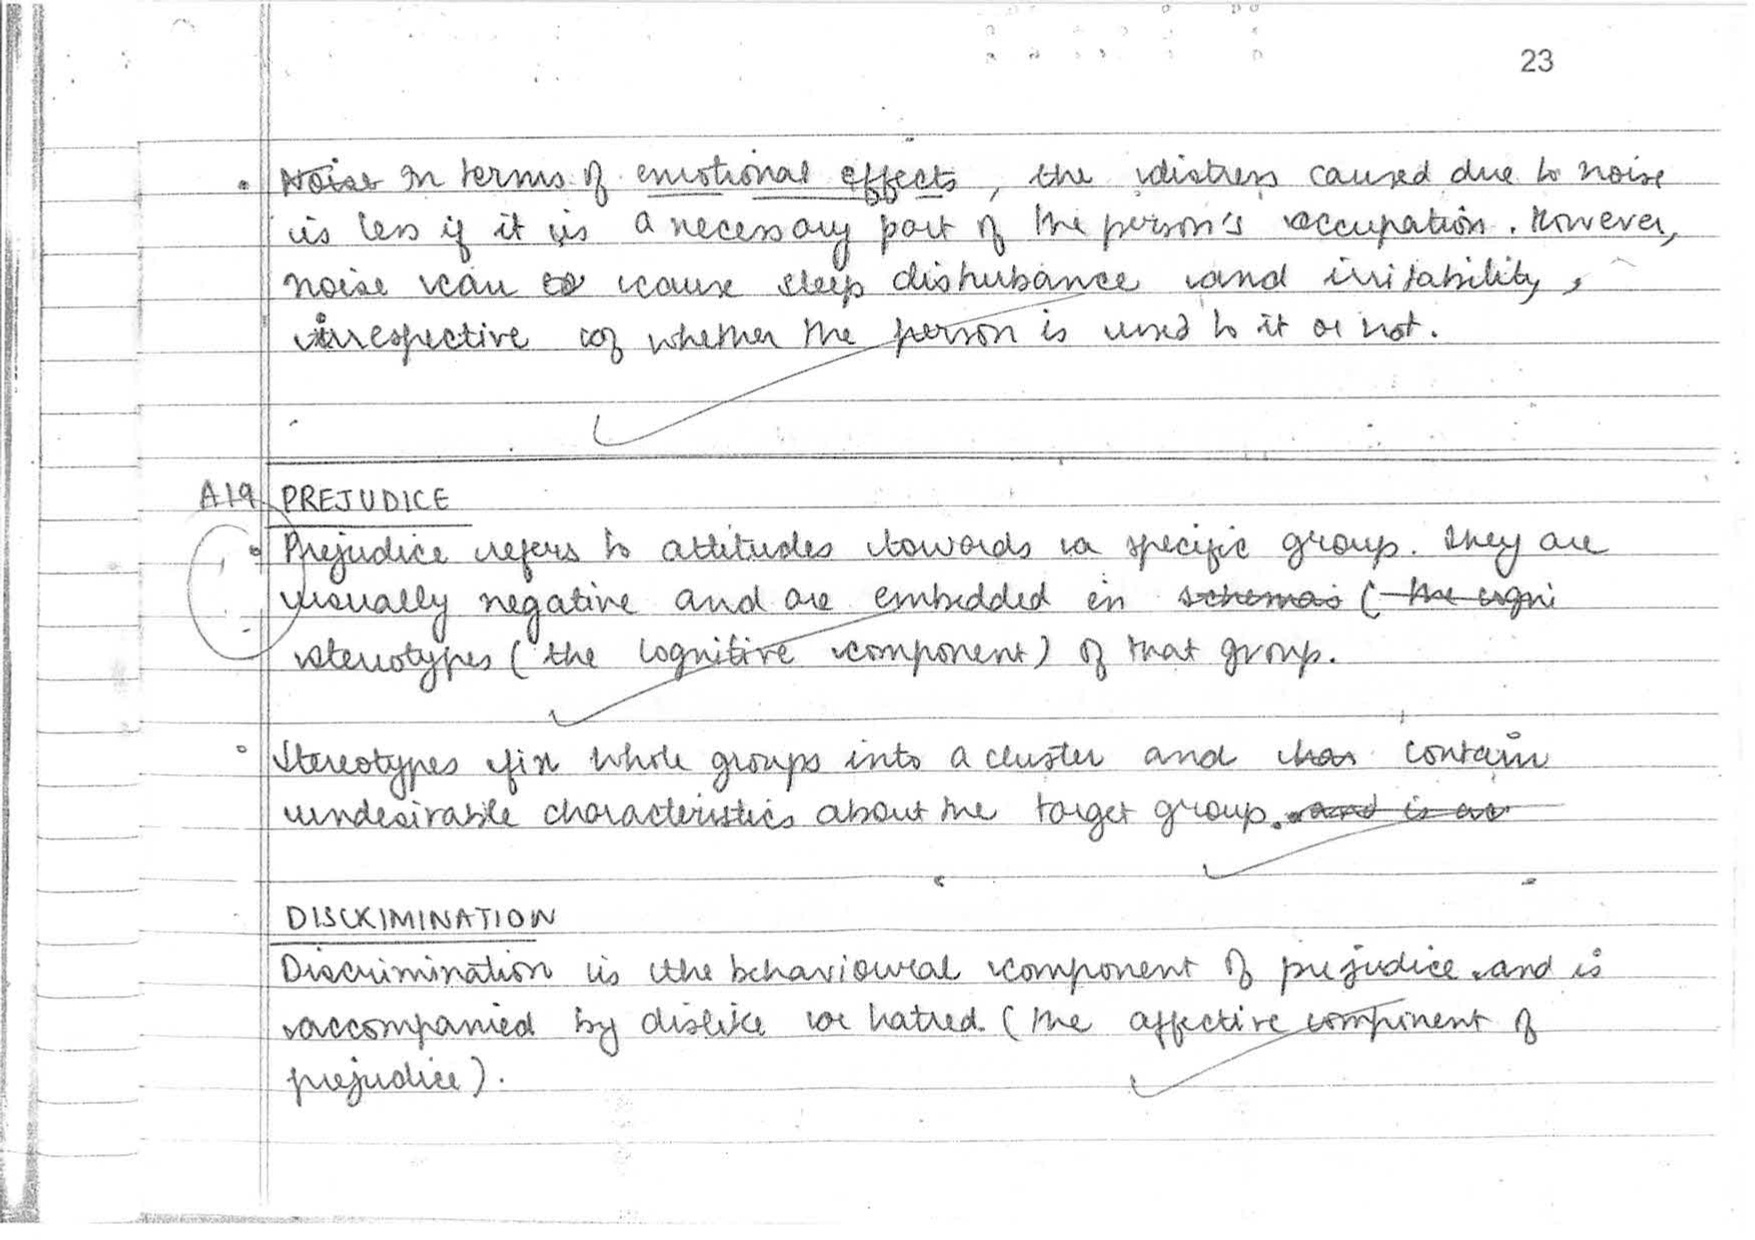 23
• Noise In terms of emotional effects, the distress caused due to noise
is less if it is a necessary part of the person's occupation. However,
noise can cause sleep disturbance and irritability,
irrespective of whether the person is used to it or not.
A19 PREJUDICE
• Prejudice refers to attitudes towards a specific group. They are
usually negative and are embedded in schemas ( the cogni
stereotypes (the cognitive component) of that group.
• Stereotypes fix whole groups into a cluster and has contain
undesirable characteristics about the target group. and is
DISCRIMINATION
Discrimination is the behavioural component of prejudice and is
accompanied by dislike or hatred (the affective component of
prejudice).